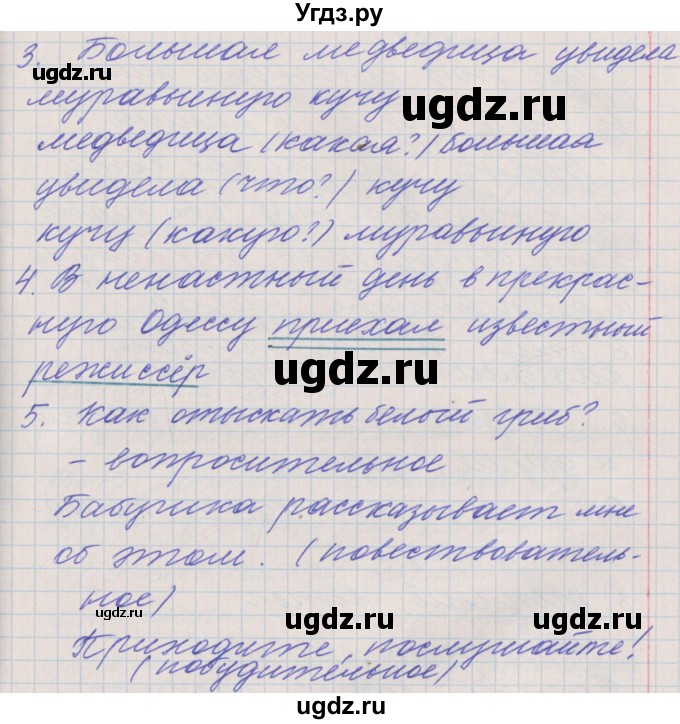 Угдз.ру
3. Большая медведица увидела
муравьиную кучу
медведица (какая?) большая
увидела (что?) кучу
кучу (какую?) муравьиную
4. В ненастный день в прекрас-
ную Одессу приехал известный
режиссёр
5. Как отыскать белый гриб?
- вопросительное
Бабушка рассказывает мне
об этом. (повествователь-
ное)
Приходите, послушайте!
(побудительное)
ugdz.ru
ugdz.ru
ugdz.ru
ugdz.ru
ugdz.ru
ugdz.ru
ugdz.ru
ugdz.ru